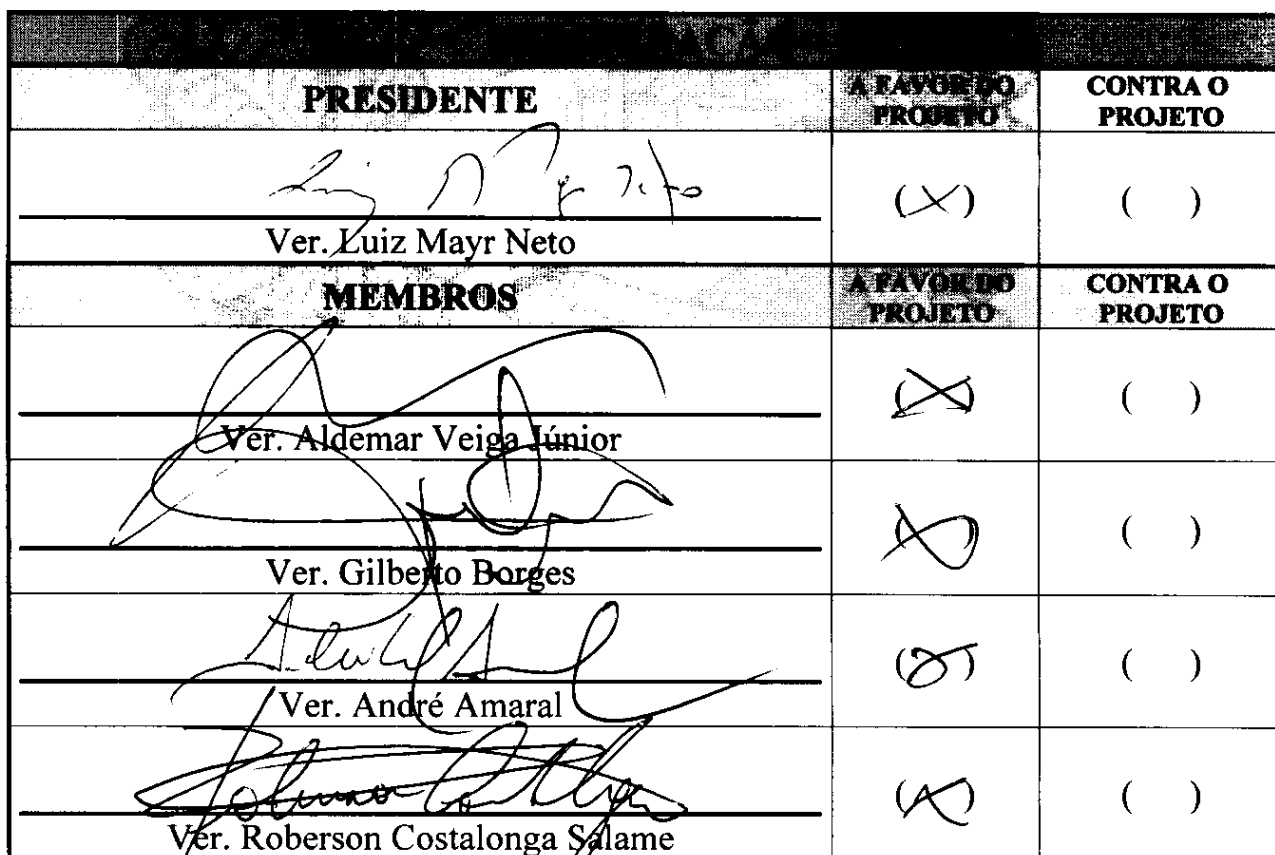 PRESIDENTE A FAVOR DO PROJETO CONTRA O PROJETO
(X) ( )
Ver. Luiz Mayr Neto
MEMBROS A FAVOR DO PROJETO CONTRA O PROJETO
(X) ( )
Ver. Aldemar Veiga Júnior
(X) ( )
Ver. Gilberto Borges
(X) ( )
Ver. André Amaral
(X) ( )
Ver. Roberson Costalonga Salame